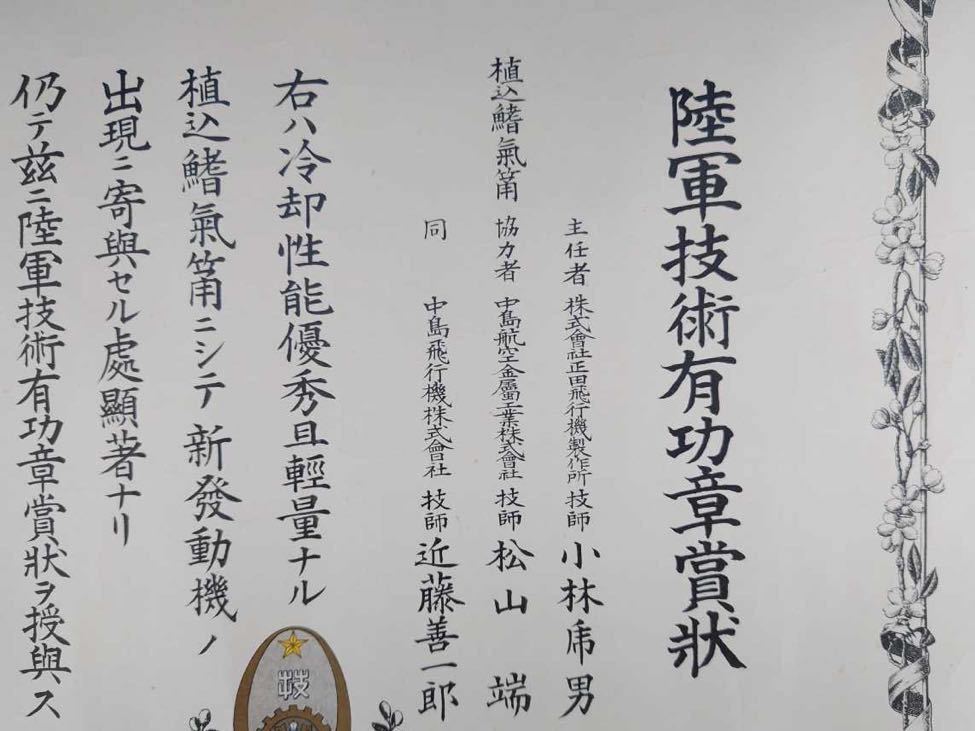 陸軍技術有功章賞狀
主任者 株式會社正田飛行機製作所 技師 小林乕男
植込鰭氣筩 協力者 中島航空金屬工業株式會社 技師 松山端
同 中島飛行機株式會社 技師 近藤善一郎
右ハ冷却性能優秀且輕量ナル
植込鰭氣筩ニシテ新發動機ノ
出現ニ寄與セル處顯著ナリ
仍テ茲ニ陸軍技術有功章賞狀ヲ授與ス
技